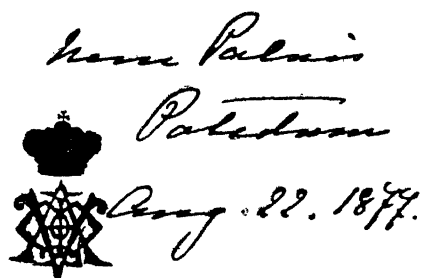 Neue Palais
Potsdam
Aug. 22. 1877.